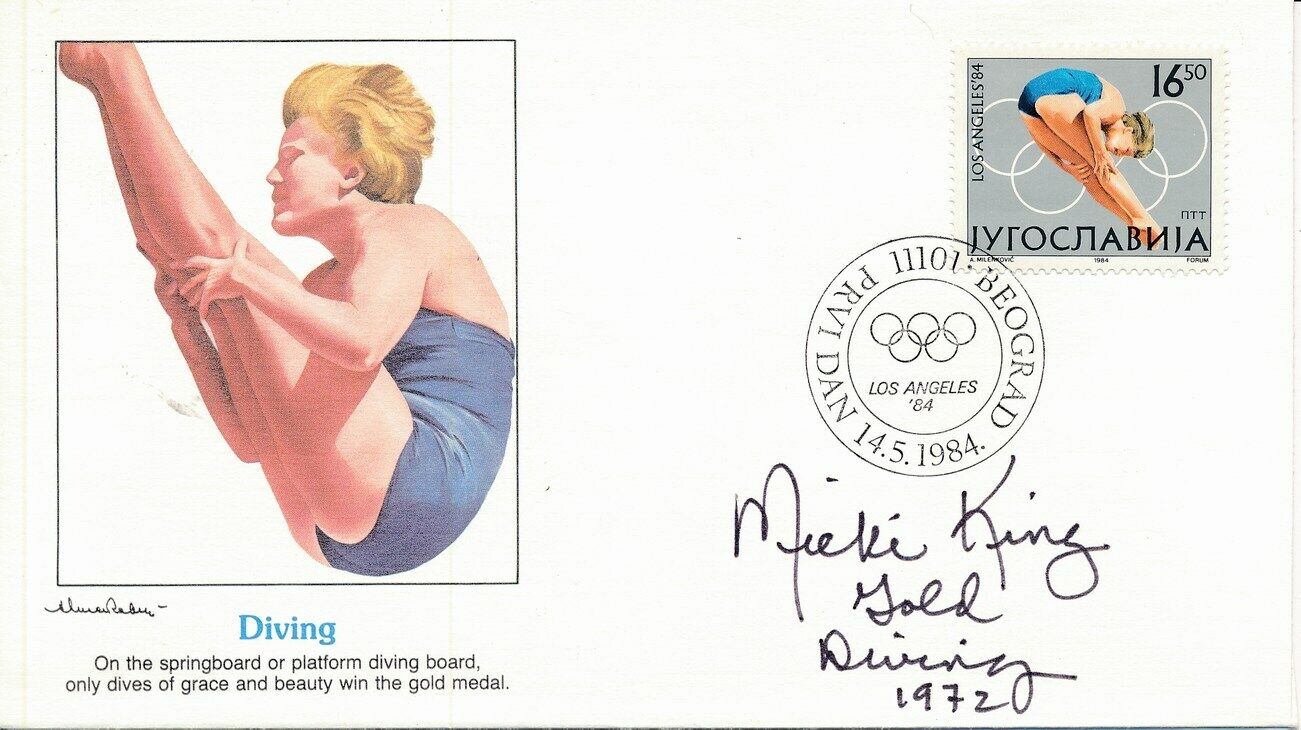 LOS ANGELES'84
16 50
ПТТ
ЈУГОСЛАВИЈА
A. MILENKOVIĆ 1984 FORUM
11101. BEOGRAD
PRVI DAN 14.5.1984.
LOS ANGELES
'84
Micki King
Gold
Diving
1972
Diving
On the springboard or platform diving board,
only dives of grace and beauty win the gold medal.